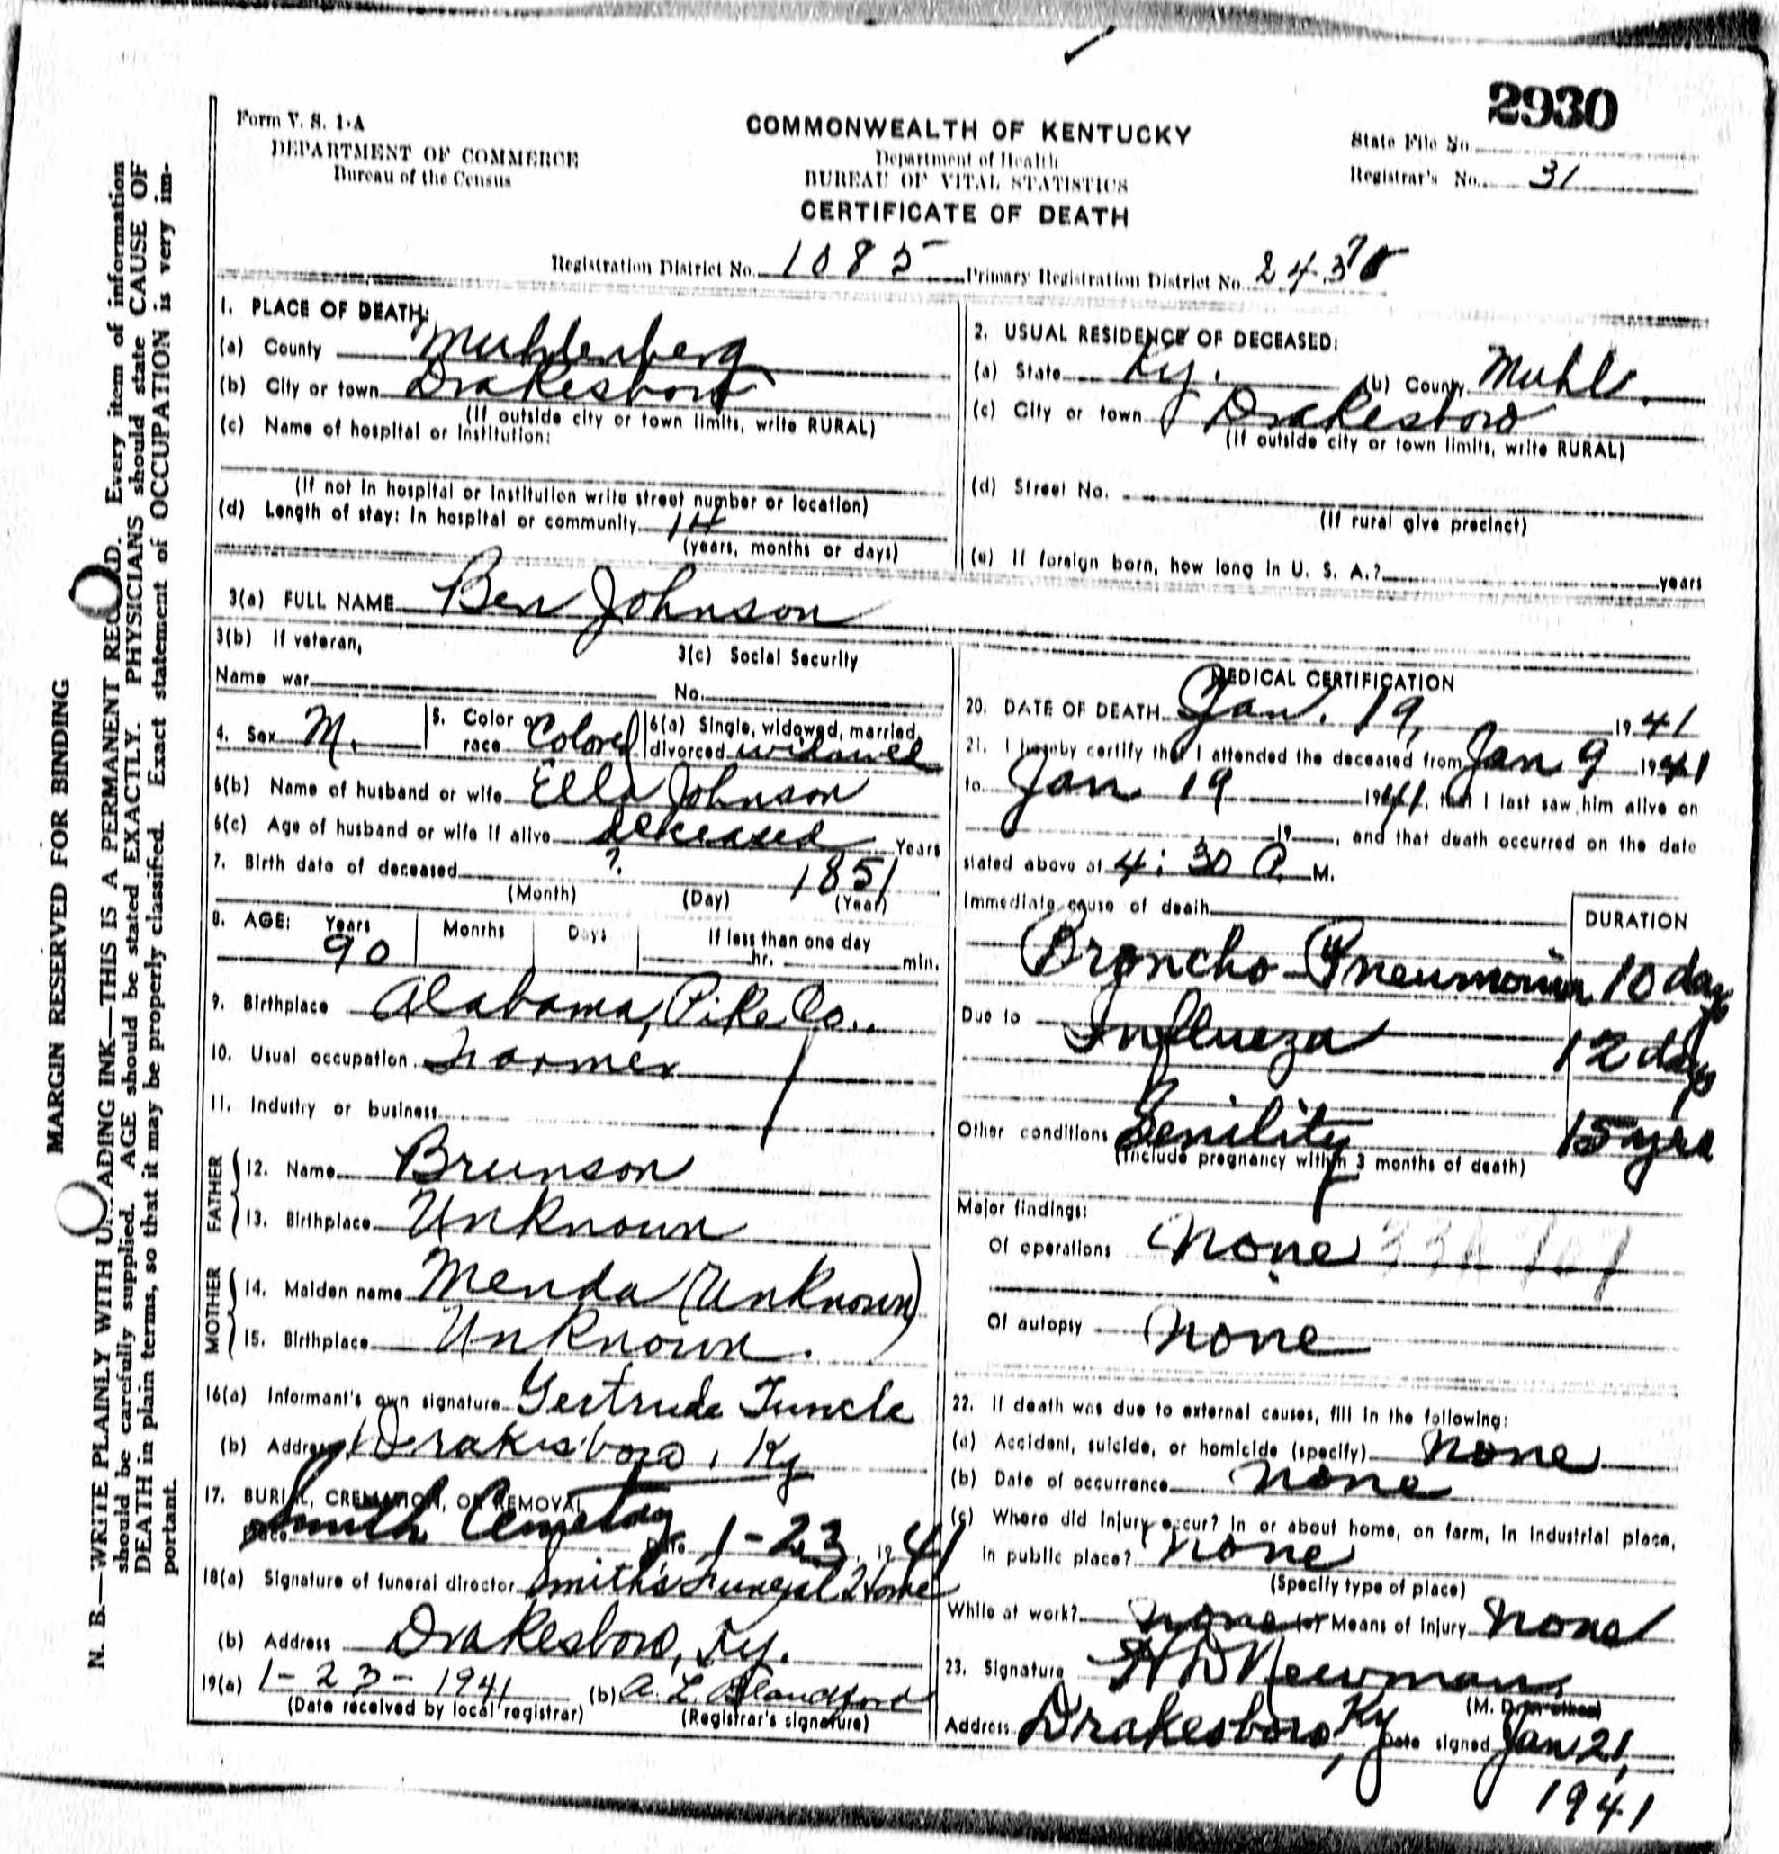 2930
Form V. S. 1-A
DEPARTMENT OF COMMERCE
Bureau of the Census
COMMONWEALTH OF KENTUCKY
Department of Health
BUREAU OF VITAL STATISTICS
CERTIFICATE OF DEATH
State File No.
Registrar's No. 31
Registration District No. 1085 Primary Registration District No.
MARGIN RESERVED FOR BINDING
N. B.—WRITE PLAINLY WITH ADING INK—THIS IS A PERMANENT RECORD. Every item of information
should be carefully supplied. AGE should be stated EXACTLY. PHYSICIANS should state CAUSE OF
DEATH in plain terms, so that it may be properly classified. Exact statement of OCCUPATION is very im-
portant.
1. PLACE OF DEATH:
(a) County Muhlenberg
(b) City or town Drakesboro
(If outside city or town limits, write RURAL)
(c) Name of hospital or institution:
(If not in hospital or institution write street number or location)
(d) Length of stay: In hospital or community 14
(years, months or days)
2. USUAL RESIDENCE OF DECEASED:
(a) State Ky. (b) County Muhl.
(c) City or town Drakesboro
(If outside city or town limits, write RURAL)
(d) Street No.
(If rural give precinct)
(e) If foreign born, how long in U. S. A.? years
3(a) FULL NAME Ben Johnson
3(b) If veteran,
Name war
3(c) Social Security
No.
4. Sex M. 5. Color or race Colored 6(a) Single, widowed, married, divorced widowed
6(b) Name of husband or wife Ella Johnson
6(c) Age of husband or wife if alive deceased Years
7. Birth date of deceased ? 1851
(Month) (Day) (Year)
8. AGE: Years Months Days If less than one day
90 hr. min.
9. Birthplace Alabama, Pike Co.
10. Usual occupation Farmer
11. Industry or business
FATHER
12. Name Brunson
13. Birthplace Unknown
MOTHER
14. Maiden name Menda (Unknown)
15. Birthplace Unknown.
16(a) Informant's own signature Gertrude
(b) Address Drakesboro, Ky
17. BURIAL, CREMATION, OR REMOVAL
Smith Cemetery Date 1-23, 1941
18(a) Signature of funeral director Smith's Funeral Home
(b) Address Drakesboro, Ky.
19(a) 1-23-1941 (b) A. L. Blandford
(Date received by local registrar) (Registrar's signature)
MEDICAL CERTIFICATION
20. DATE OF DEATH Jan. 19, 1941
21. I hereby certify that I attended the deceased from Jan 9 1941
to Jan 19 1941, that I last saw him alive on
19 , and that death occurred on the date
stated above at 4:30 P. M.
Immediate cause of death DURATION
Broncho Pneumonia 10 days
Due to Influeza 12 days
Other conditions Senility 15 yrs
(Include pregnancy within 3 months of death)
Major findings:
Of operations none
Of autopsy none
22. If death was due to external causes, fill in the following:
(a) Accident, suicide, or homicide (specify) none
(b) Date of occurrence none
(c) Where did injury occur? In or about home, on farm, in industrial place,
in public place? none
(Specify type of place)
While at work? none Means of injury none
23. Signature H D Newman
(M. D. or other)
Address Drakesboro, Ky Date signed Jan 21,
1941